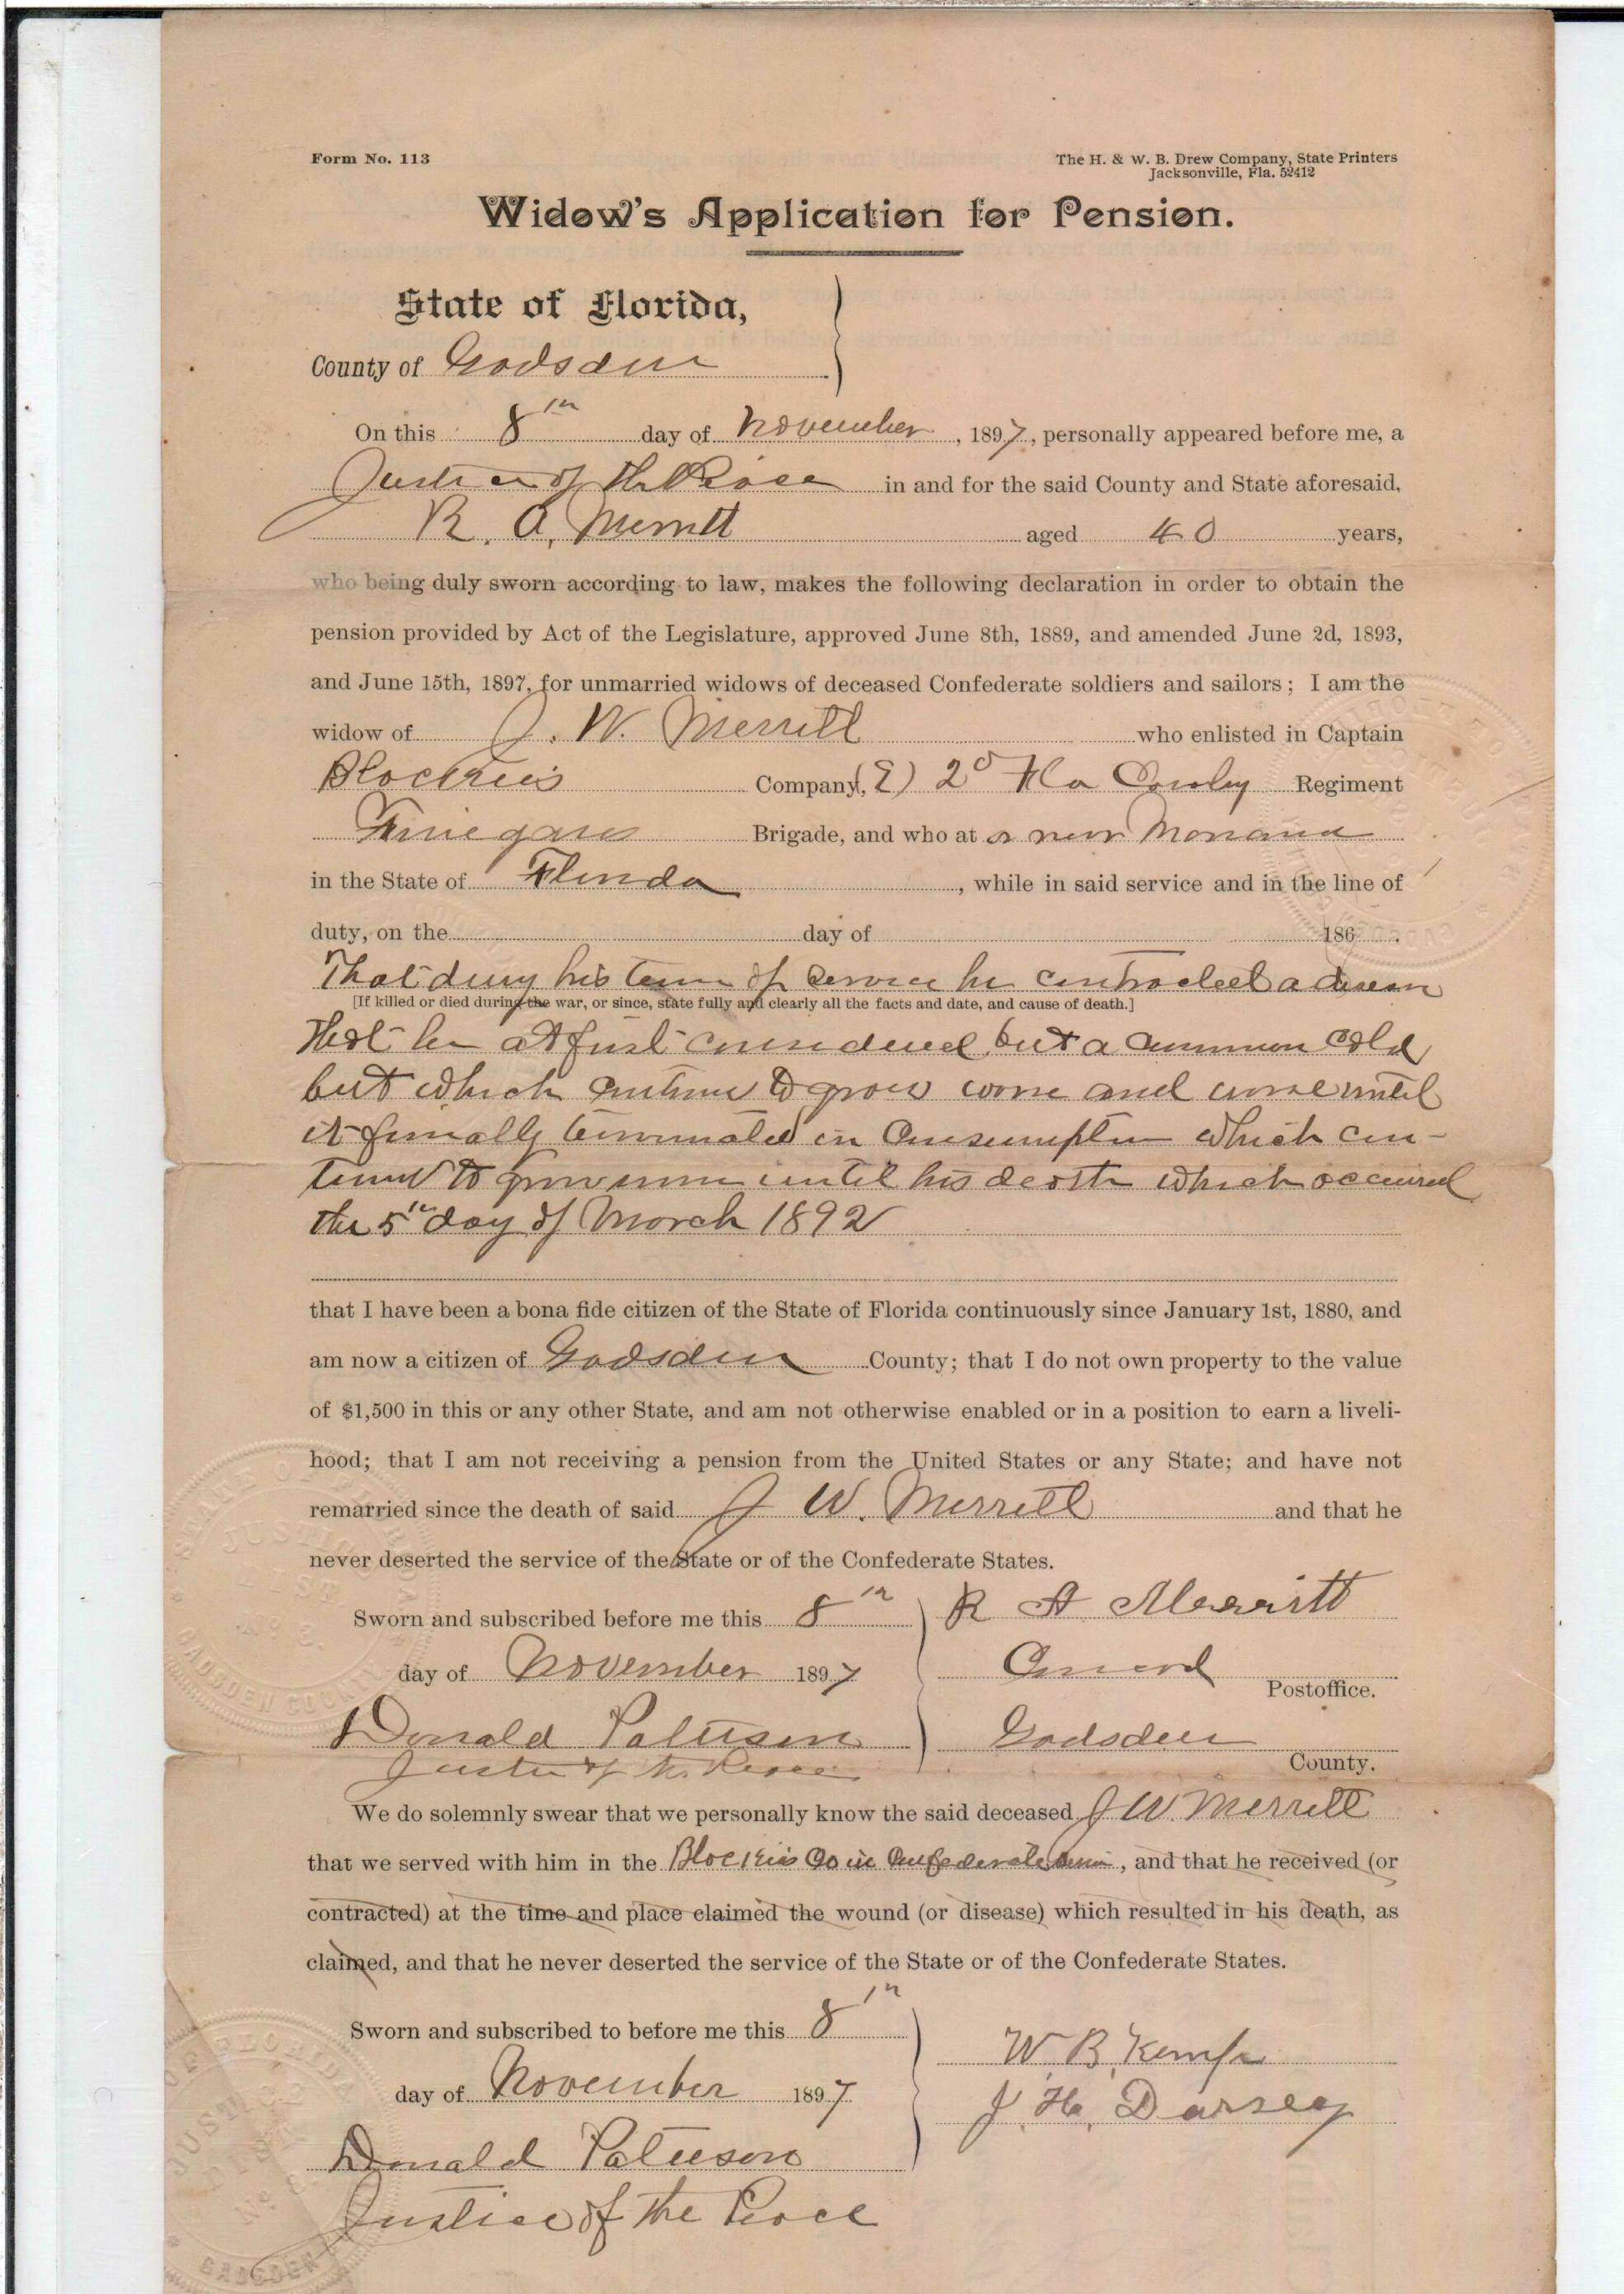 Form No. 113
The H. & W. B. Drew Company, State Printers
Jacksonville, Fla. 52412
Widow's Application for Pension.
State of Florida,
County of Gadsden
On this 8th day of November, 1897, personally appeared before me, a
Justice of the Peace in and for the said County and State aforesaid,
R. A. Merritt aged 40 years,
who being duly sworn according to law, makes the following declaration in order to obtain the
pension provided by Act of the Legislature, approved June 8th, 1889, and amended June 2d, 1893,
and June 15th, 1897, for unmarried widows of deceased Confederate soldiers and sailors; I am the
widow of J. W. Merritt who enlisted in Captain
Company, (E) 2d Fla Cavalry Regiment
Finegans Brigade, and who at or near
in the State of Florida, while in said service and in the line of
duty, on the day of 186
That during his term of service he contracted a disease
[If killed or died during the war, or since, state fully and clearly all the facts and date, and cause of death.]
that he at first considered but a common cold
but which continued to grow worse and worse until
it finally terminated in Consumption which con-
tinued to grow worse until his death which occurred
the 5th day of March 1892
that I have been a bona fide citizen of the State of Florida continuously since January 1st, 1880, and
am now a citizen of Gadsden County; that I do not own property to the value
of $1,500 in this or any other State, and am not otherwise enabled or in a position to earn a liveli-
hood; that I am not receiving a pension from the United States or any State; and have not
remarried since the death of said J W. Merritt and that he
never deserted the service of the State or of the Confederate States.
Sworn and subscribed before me this 8th R A Merritt
day of November 1897 Concord
Postoffice.
Donald Paterson Gadsden
Justice of the Peace County.
We do solemnly swear that we personally know the said deceased J W. Merritt
that we served with him in the Co in Confederate, and that he received (or
contracted) at the time and place claimed the wound (or disease) which resulted in his death, as
claimed, and that he never deserted the service of the State or of the Confederate States.
Sworn and subscribed to before me this 8th
W. B. Kemp
day of November 1897
J. H. Darsey
Donald Paterson
Justice of the Peace